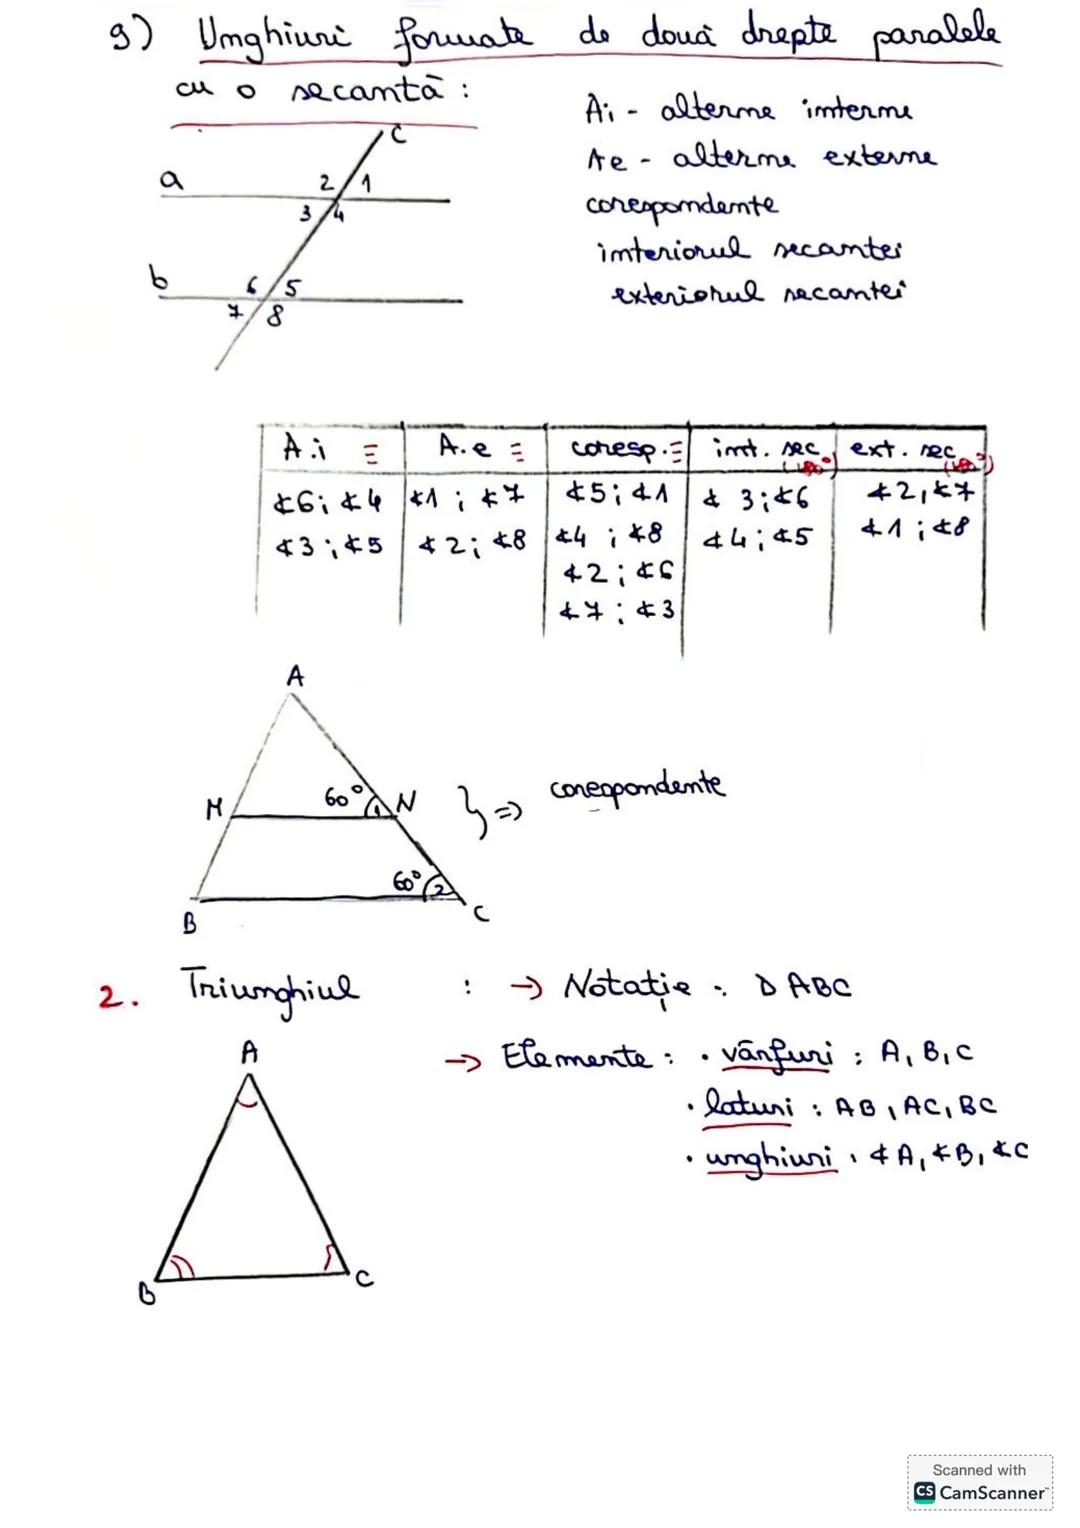 9) Unghiuri formate de două drepte paralele
cu o secantă :
Ai - alterne interne
Ae - alterne externe
corespondente
interiorul secantei
exteriorul secantei
c
a
2 1
3 4
b
6 5
7 8
A.i ≡ A.e ≡ coresp. ≡ int. sec. (180°) ext. sec. (180°)
∢6; ∢4 ∢1 ; ∢7 ∢5; ∢1 ∢3; ∢6 ∢2, ∢7
∢3 ; ∢5 ∢2; ∢8 ∢4 ; ∢8 ∢4; ∢5 ∢1 ; ∢8
∢2 ; ∢6
∢7 ; ∢3
A
M 60° 1 N } => corespondente
60° 2
B C
2. Triunghiul : → Notație : Δ ABC
→ Elemente : • vârfuri : A, B, C
• laturi : AB, AC, BC
• unghiuri : ∢A, ∢B, ∢C
A
B C
Scanned with
CS CamScanner